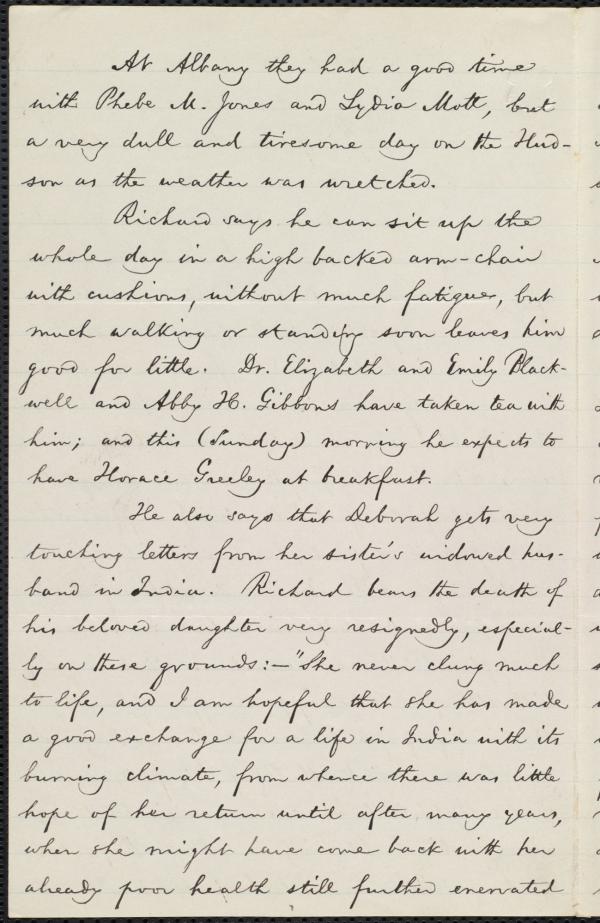 At Albany they had a good time
with Phebe M. Jones and Lydia Mott, but
a very dull and tiresome day on the Hud-
son as the weather was wretched.
Richard says he can sit up the
whole day in a high backed arm-chair
with cushions, without much fatigue, but
much walking or standing soon leaves him
good for little. Dr. Elizabeth and Emily Black-
well and Abby H. Gibbons have taken tea with
him; and this (Sunday) morning he expects to
have Horace Greeley at breakfast.
He also says that Deborah gets very
touching letters from her sister's widowed hus-
band in India. Richard bears the death of
his beloved daughter very resignedly, especial-
ly on these grounds:—"She never clung much
to life, and I am hopeful that she has made
a good exchange for a life in India with its
burning climate, from whence there was little
hope of her return until after many years,
when she might have come back with her
already poor health still further enervated